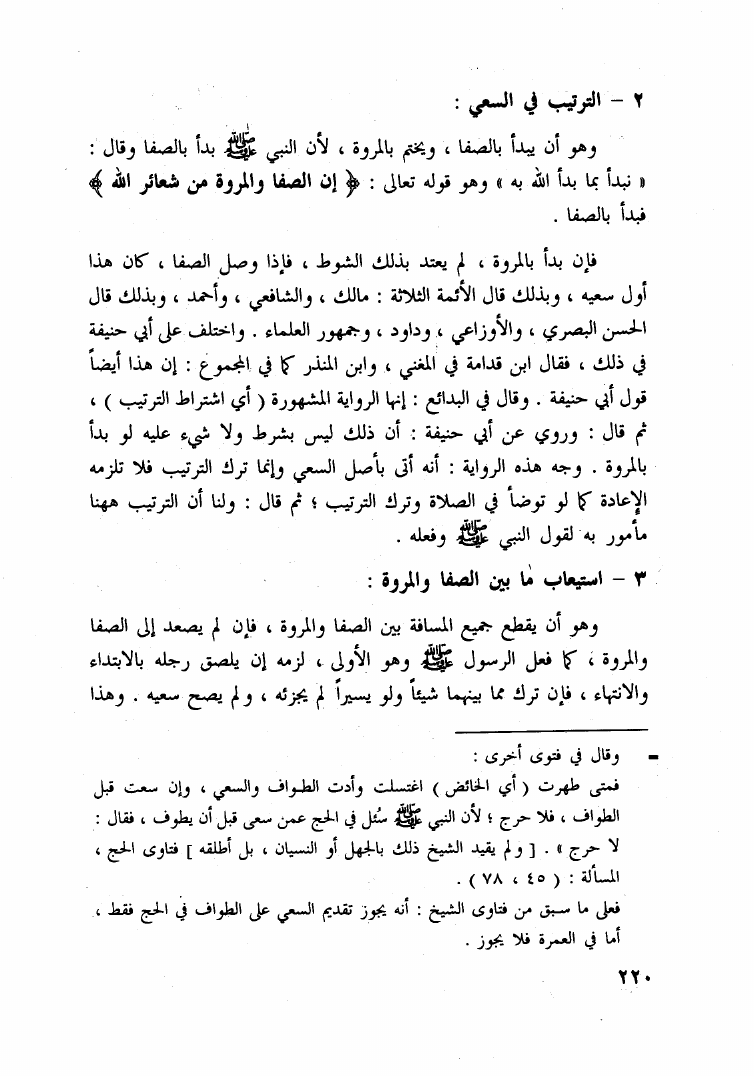 ٢ – الترتيب في السعي :
وهو أن يبدأ بالصفا ، ويختم بالمروة ، لأن النبي ﷺ بدأ بالصفا وقال :
« نبدأ بما بدأ الله به » وهو قوله تعالى : ﴿ إن الصفا والمروة من شعائر الله ﴾
فبدأ بالصفا .
فإن بدأ بالمروة ، لم يعتد بذلك الشوط ، فإذا وصل الصفا ، كان هذا
أول سعيه ، وبذلك قال الأئمة الثلاثة : مالك ، والشافعي ، وأحمد ، وبذلك قال
الحسن البصري ، والأوزاعي ، وداود ، وجمهور العلماء . واختلف على أبي حنيفة
في ذلك ، فقال ابن قدامة في المغني ، وابن المنذر كما في المجموع : إن هذا أيضاً
قول أبي حنيفة . وقال في البدائع : إنها الرواية المشهورة ( أي اشتراط الترتيب ) ،
ثم قال : وروي عن أبي حنيفة : أن ذلك ليس بشرط ولا شيء عليه لو بدأ
بالمروة . وجه هذه الرواية : أنه أتى بأصل السعي وإنما ترك الترتيب فلا تلزمه
الإعادة كما لو توضأ في الصلاة وترك الترتيب ؛ ثم قال : ولنا أن الترتيب ههنا
مأمور به لقول النبي ﷺ وفعله .
٣ – استيعاب ما بين الصفا والمروة :
وهو أن يقطع جميع المسافة بين الصفا والمروة ، فإن لم يصعد إلى الصفا
والمروة ، كما فعل الرسول ﷺ وهو الأولى ، لزمه إن يلصق رجله بالابتداء
والانتهاء ، فإن ترك مما بينهما شيئاً ولو يسيراً لم يجزئه ، ولم يصح سعيه . وهذا
= وقال في فتوى أخرى :
فمتى طهرت ( أي الحائض ) اغتسلت وأدت الطواف والسعي ، وإن سعت قبل
الطواف ، فلا حرج ؛ لأن النبي ﷺ سُئل في الحج عمن سعى قبل أن يطوف ، فقال :
لا حرج » . [ ولم يقيد الشيخ ذلك بالجهل أو النسيان ، بل أطلقه ] فتاوى الحج ،
المسألة : ( ٤٥ ، ٧٨ ) .
فعلى ما سبق من فتاوى الشيخ : أنه يجوز تقديم السعي على الطواف في الحج فقط ،
أما في العمرة فلا يجوز .
٢٢٠